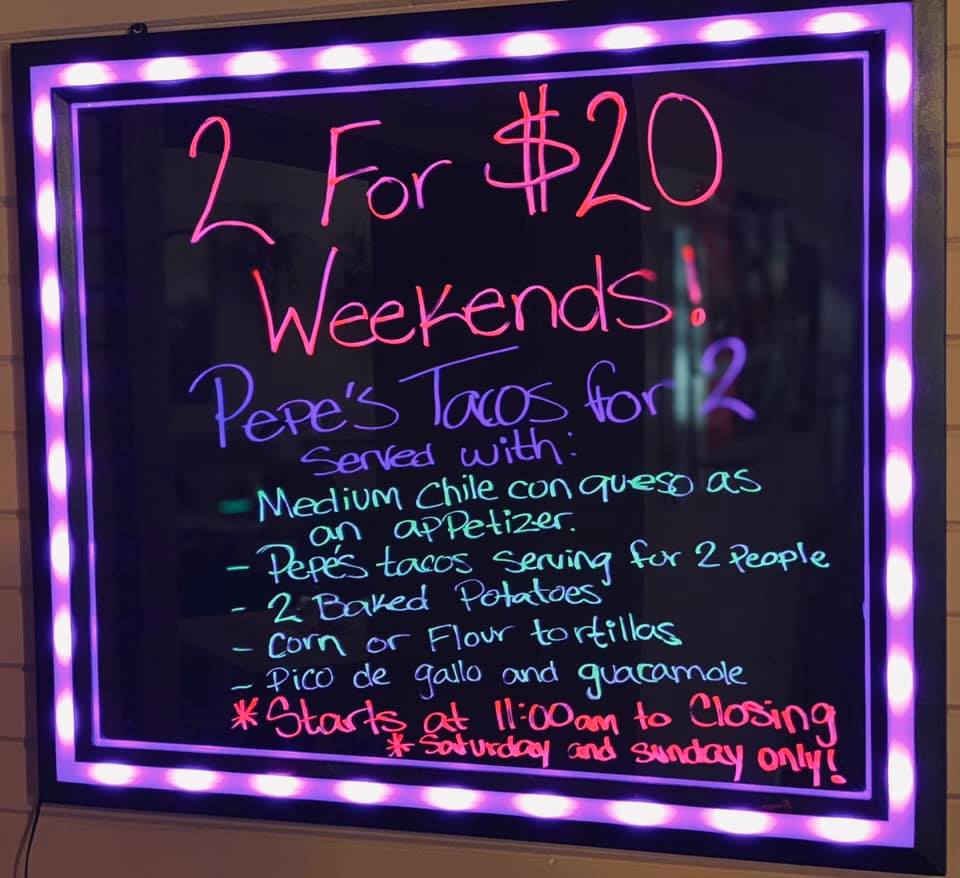 2 For $20
Weekends!
Pepe's Tacos for 2
Served with:
- Medium Chile con queso as
an appetizer.
- Pepe's tacos serving for 2 people
- 2 Baked Potatoes
- Corn or Flour tortillas
- Pico de gallo and guacamole
* Starts at 11:00am to Closing
* Saturday and sunday only!